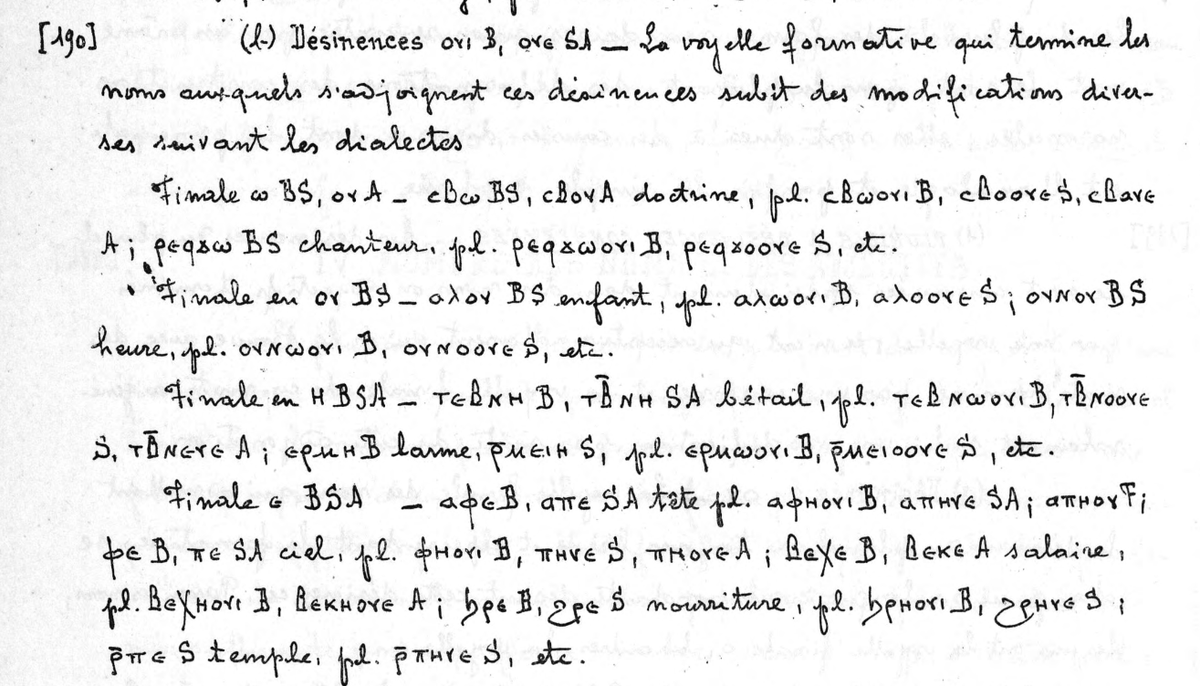 [190] (l) Désinences ⲟⲩⲓ B, ⲟⲩⲉ SA — La voyelle formative qui termine les
noms auxquels s'adjoignent ces désinences subit des modifications diver-
ses suivant les dialectes
Finale ⲱ BS, ⲟⲩ A — ⲥⲃⲱ BS, ⲥⲃⲟⲩ A doctrine, pl. ⲥⲃⲱⲟⲩⲓ B, ⲥⲃⲟⲟⲩⲉ S, ⲥⲃⲁⲩⲉ
A ; ⲣⲉϥϫⲱ BS chanteur, pl. ⲣⲉϥϫⲱⲟⲩⲓ B, ⲣⲉϥϫⲟⲟⲩⲉ S, etc.
Finale en ⲟⲩ BS — ⲁⲗⲟⲩ BS enfant, pl. ⲁⲗⲱⲟⲩⲓ B, ⲁⲗⲟⲟⲩⲉ S ; ⲟⲩⲛⲟⲩ BS
heure, pl. ⲟⲩⲛⲱⲟⲩⲓ B, ⲟⲩⲛⲟⲟⲩⲉ S, etc.
Finale en ⲏ BSA — ⲧⲉⲃⲛⲏ B, ⲧⲃ̄ⲛⲏ SA bétail, pl. ⲧⲉⲃⲛⲱⲟⲩⲓ B, ⲧⲃ̄ⲛⲟⲟⲩⲉ
S, ⲧⲃ̄ⲛⲉⲩⲉ A ; ⲉⲣⲙⲏ B larme, ⲣ̄ⲙⲉⲓⲏ S, pl. ⲉⲣⲙⲱⲟⲩⲓ B, ⲣ̄ⲙⲉⲓⲟⲟⲩⲉ S, etc.
Finale ⲉ BSA — ⲁⲫⲉ B, ⲁⲡⲉ SA tête pl. ⲁⲫⲏⲟⲩⲓ B, ⲁⲡⲏⲩⲉ SA ; ⲁⲡⲏⲟⲩ F ;
ⲫⲉ B, ⲡⲉ SA ciel, pl. ⲫⲏⲟⲩⲓ B, ⲡⲏⲩⲉ S, ⲡⲏⲟⲩⲉ A ; ⲃⲉⲭⲉ B, ⲃⲉⲕⲉ A salaire,
pl. ⲃⲉⲭⲏⲟⲩⲓ B, ⲃⲉⲕⲏⲟⲩⲉ A ; ϧⲣⲉ B, ϩⲣⲉ S nourriture, pl. ϧⲣⲏⲟⲩⲓ B, ϩⲣⲏⲩⲉ S ;
ⲣ̄ⲡⲉ S temple, pl. ⲣ̄ⲡⲏⲩⲉ S, etc.